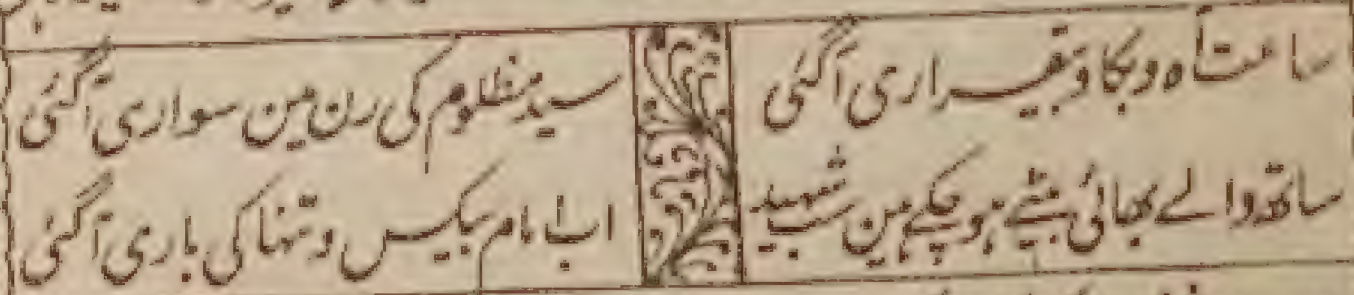 ساعت آہ و بکا و بیقراری آگئی
سید مظلوم کی رن مین سواری آگئی
ساتھ والے بھائی بیٹے ہوچکے ہین سب شہید
اب امام بیکس و تنہا کی باری آگئی